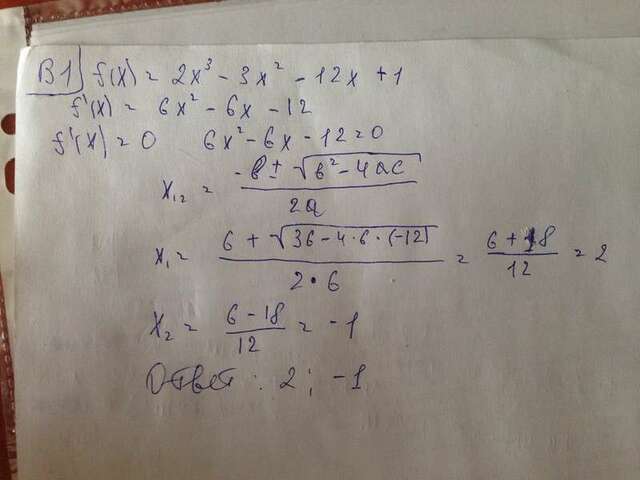 В1) f(x) = 2x³ - 3x² - 12x + 1
f'(x) = 6x² - 6x - 12
f'(x) = 0   6x² - 6x - 12 = 0
x₁,₂ = (-b ± √(b² - 4ac)) / 2a
x₁ = (6 + √(36 - 4·6·(-12))) / (2·6) = (6 + 18) / 12 = 2
x₂ = (6 - 18) / 12 = -1
Ответ: 2; -1